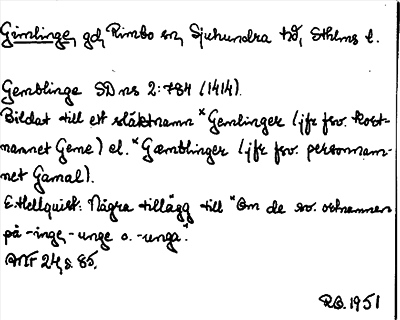 Gimlinge, gd, Rimbo sn, Sjuhundra hd, Sthlms l.
Gemblinge SD ns 2:784 (1414).
Bildat till ett släktnamn *Gemlinger (jfr fsv. kost-
namnet Geme) el. *Gæmblinger (jfr fsv. personnam-
net Gamal).
E. Hellquist: Några tillägg till "Om de sv. ortnamnen
på -inge, -unge o. -unga".
ANF 24, s. 85.
1951